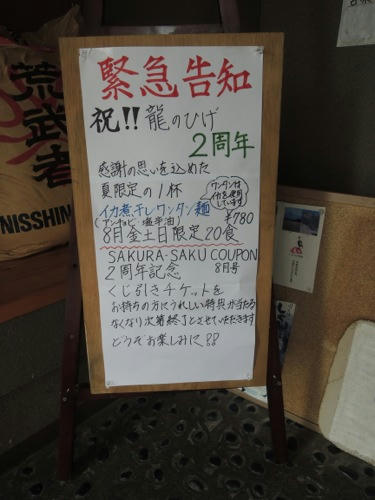 緊急告知
祝!! 龍のひげ
2周年
感謝の思いを込めた
夏限定の1杯
イカ煮干しワンタン麺
ワンタンは
イカを使用
しています
¥780
8月金土日限定20食
SAKURA-SAKU COUPON
2周年記念 8月号
くじ引きチケットを
お持ちの方にうれしい特典が当たる
なくなり次第終了とさせていただきます
どうぞお楽しみに!!
荒武者
NISSHIN